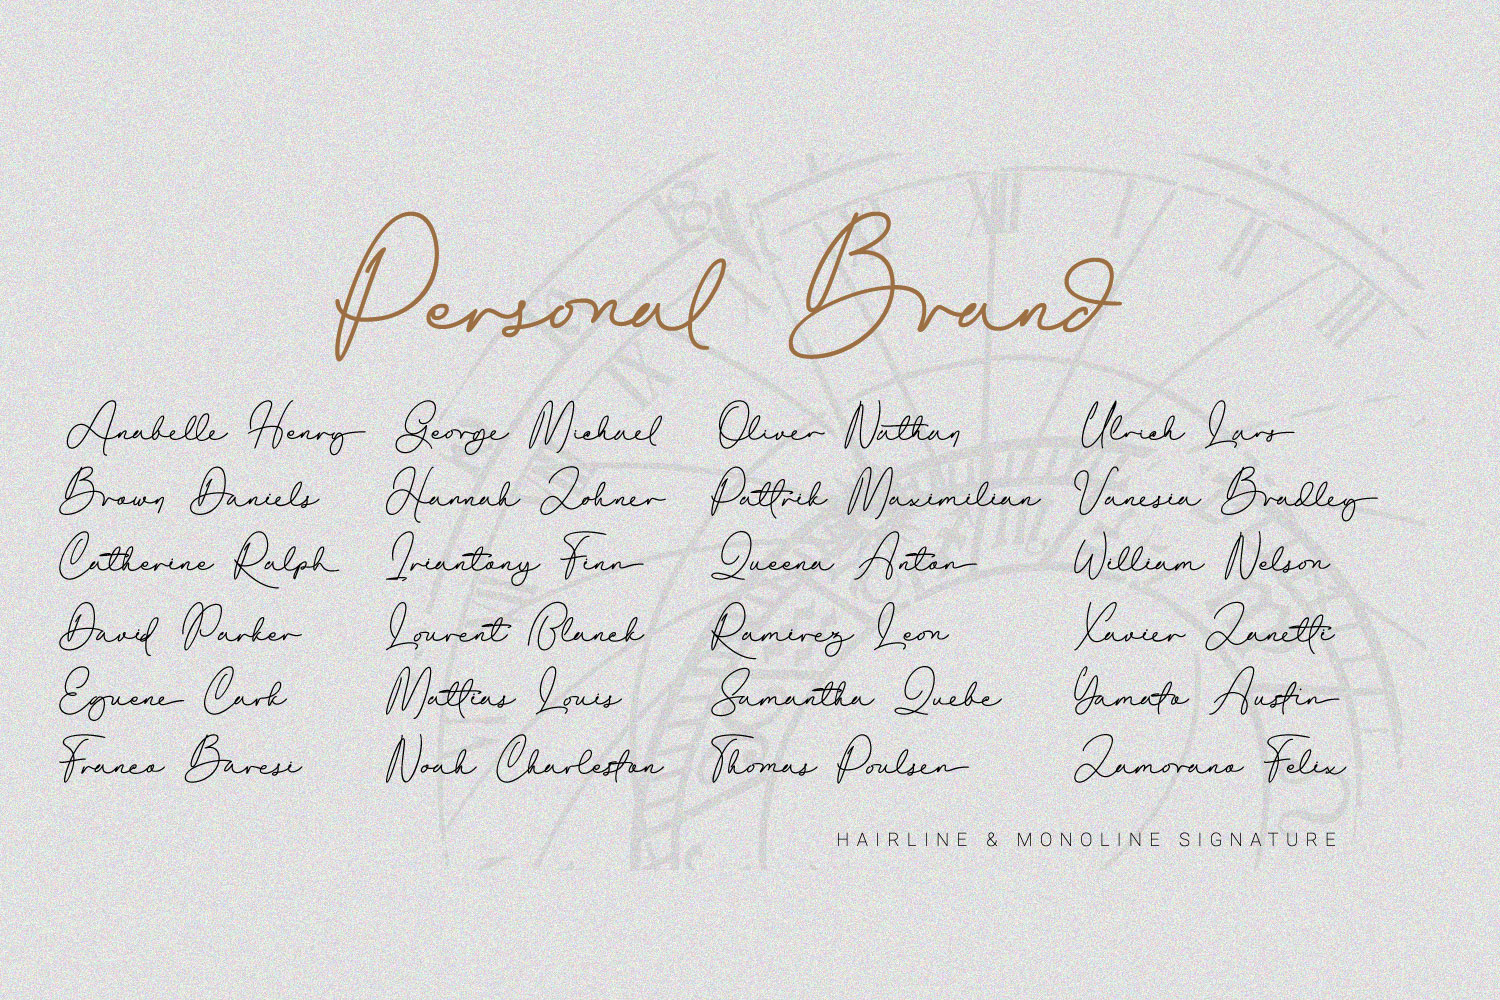 Personal Brand
Anabelle Henry
Brown Daniels
Catherine Ralph
David Parker
Eguene Cark
Franco Baresi
George Michael
Hannah Zohner
Iriantony Finn
Lourent Blanek
Mattias Louis
Noah Charleston
Oliver Nathan
Pattrik Maximilian
Queena Anton
Ramirez Leon
Samantha Quebe
Thomas Poulsen
Ulrich Lars
Vanesia Bradley
William Nelson
Xavier Zanetti
Yamato Austin
Zamorano Felix
HAIRLINE & MONOLINE SIGNATURE
XII
I
II
III
IX